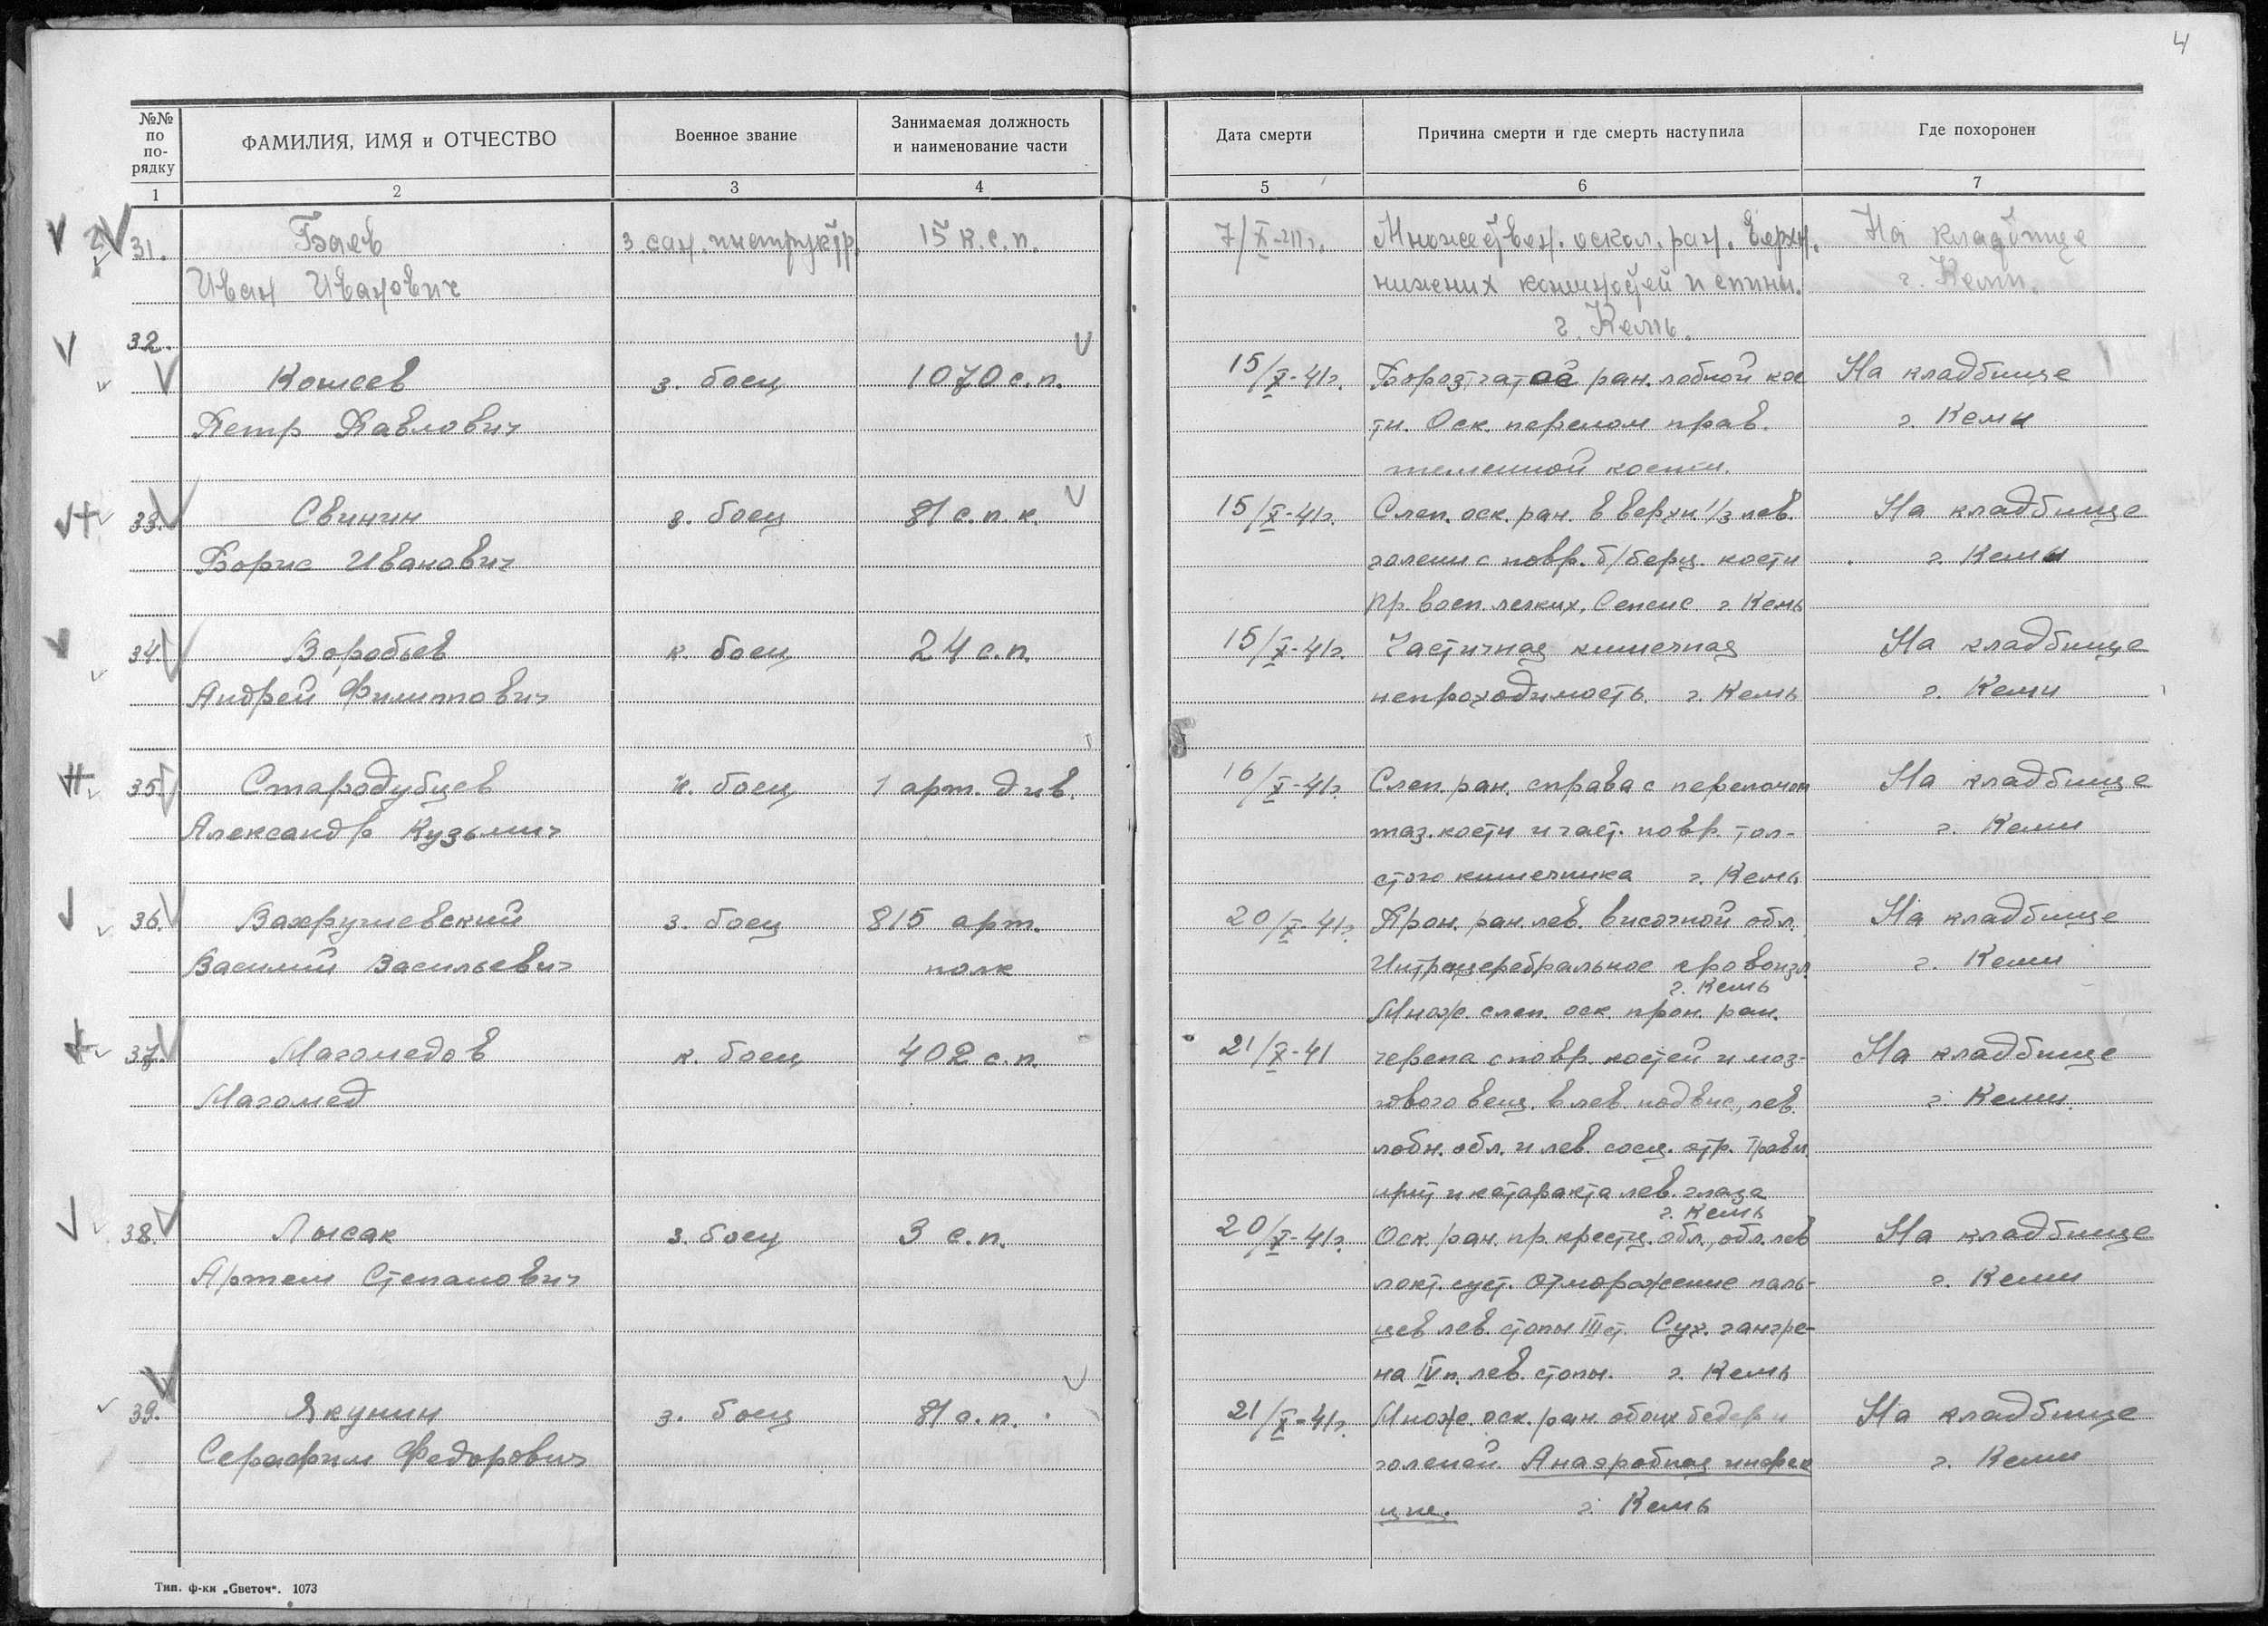 4
№№ по по- рядку | ФАМИЛИЯ, ИМЯ и ОТЧЕСТВО | Военное звание | Занимаемая должность и наименование части | Дата смерти | Причина смерти и где смерть наступила | Где похоронен
1 | 2 | 3 | 4 | 5 | 6 | 7
31. Баев | з. сан. инструктр. | 15 к.с.п. | 7/X-41г. | Множествен. оскол. ран. верхн. | На кладбище
Иван Иванович | нижних конечностей и спины. | г. Кеми.
г. Кемь.
32.
Кошеев | з. боец | 1070 с.п. | 15/X-41г. | Бороздчатое ран. лобной кос | На кладбище
Петр Павлович | ти. Оск. перелом прав. | г. Кеми
теменной кости.
33. Свинин | з. боец | 81 с.п.к. | 15/X-41г. | Слеп. оск. ран. в верхн 1/3 лев. | На кладбище
Борис Иванович | голени с повр. б/берц. кости | г. Кеми
Пр. восп. легких. Сепсис г. Кемь
34. Воробьев | к. боец | 24 с.п. | 15/X-41г. | Частичная кишечная | На кладбище
Андрей Филиппович | непроходимость. г. Кемь | г. Кеми
35. Стародубцев | к. боец | 1 арт. див. | 16/X-41г. | Слеп. ран. справа с переломом | На кладбище
Александр Кузьмич | таз. кости и част. повр. тол- | г. Кеми
стого кишечника г. Кемь
36. Вахрушевский | з. боец | 815 арт. | 20/X-41г. | Прон. ран. лев. височной обл. | На кладбище
Василий Васильевич | полк | Интрацеребральное кровоизл. | г. Кеми
г. Кемь
Множ. слеп. оск. прон. ран.
37. Магомедов | к. боец | 402 с.п. | 21/X-41 | черепа с повр. костей и моз- | На кладбище
Магомед | гового вещ. в лев. подвис., лев. | г. Кеми.
лобн. обл. и лев. сосц. отр. Травм.
ирит и катаракта лев. глаза
г. Кемь
38. Лысак | з. боец | 3 с.п. | 20/X-41г. | Оск. ран. пр. крестц. обл., обл. лев | На кладбище
Артем Степанович | локт. суст. Отморожение паль- | г. Кеми
цев лев. стопы III ст. Сух. гангре-
на IV п. лев. стопы. г. Кемь
39. Якунин | з. боец | 81 с.п. | 21/X-41г. | Множ. оск. ран обоих бедер и | На кладбище
Серафим Федорович | голеней. Анаэробная инфек | г. Кеми
ция. г. Кемь
Тип. ф-ки „Светоч“. 1073